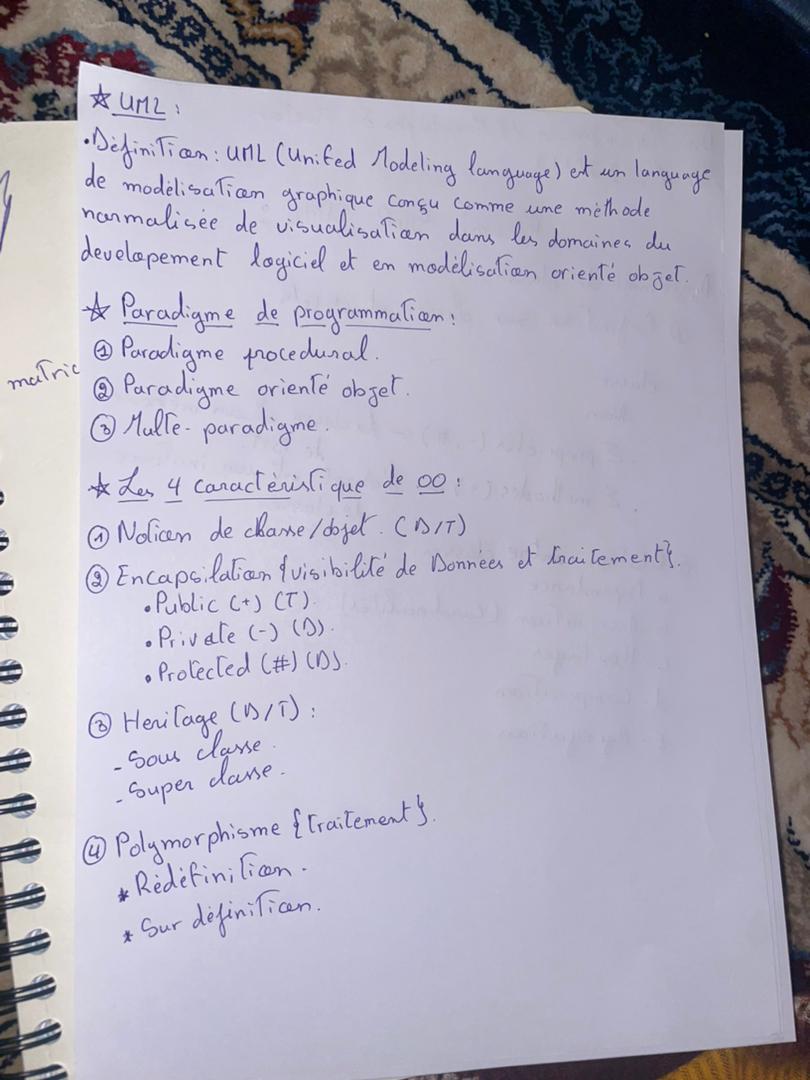 ☆ UML :
• Définition : UML (Unifed Modeling language) et un language
de modélisation graphique conçu comme une méthode
normalisée de visualisation dans les domaines du
developement logiciel et en modélisation orienté objet.
☆ Paradigme de programmation :
① Paradigme procedural.
② Paradigme orienté objet.
③ Multe-paradigme.
matric
☆ Les 4 caractéristique de OO :
① Notion de classe/objet. (D/T)
② Encapsilation {visibilité de Données et traitement}.
• Public (+) (T).
• Private (-) (D).
• Protected (#) (D).
③ Heritage (D/T) :
- Sous classe.
- Super classe.
④ Polymorphisme {traitement}.
* Rédéfinition.
* Sur définition.